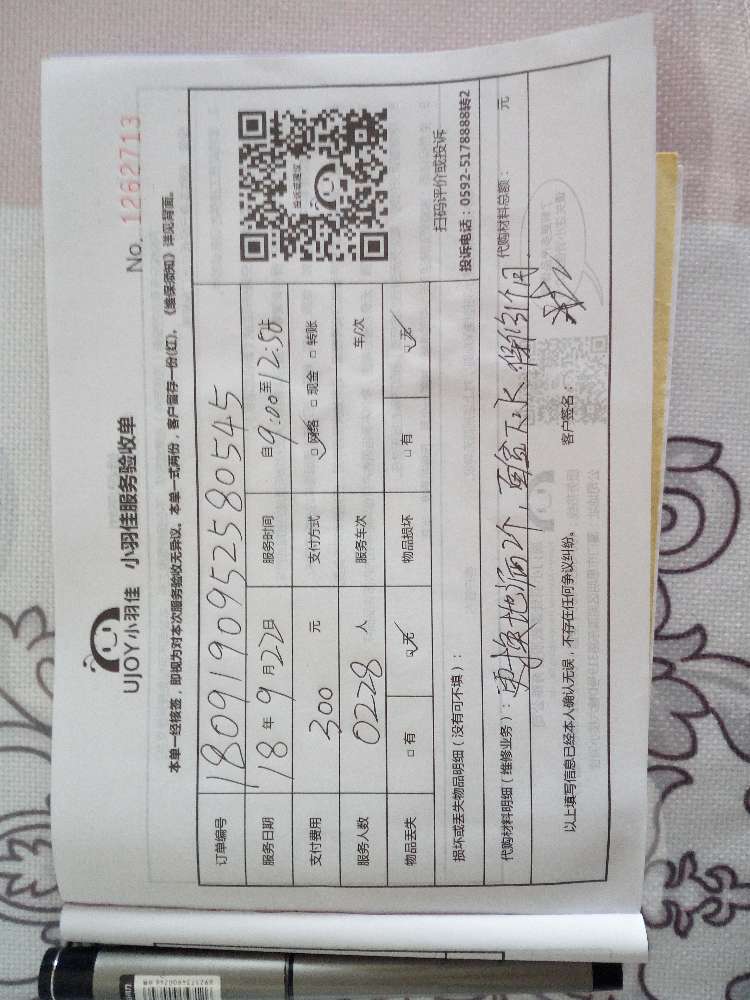 UJOY小羽佳 小羽佳服务验收单
No. 1262713
本单一经核签，即视为对本次服务验收无异议。本单一式两份，客户留存一份(红)，《维保须知》详见背面。
订单编号 180919095258054​5
服务日期 18年9月22日 服务时间 自9:00至12:50
支付费用 300 元 支付方式 ☑网络 □现金 □转账
服务人数 0228 人 服务车次 车/次
物品丢失 □有 ☑无 物品损坏 □有 ☑无
扫码评价或投诉
投诉电话：0592-5178888转2
损坏或丢失物品明细（没有可不填）：
代购材料明细（维修业务）：更换地漏2个，面盆下水 代购材料总额： 元
以上填写信息已经本人确认无误，不存在任何争议纠纷。 客户签名：